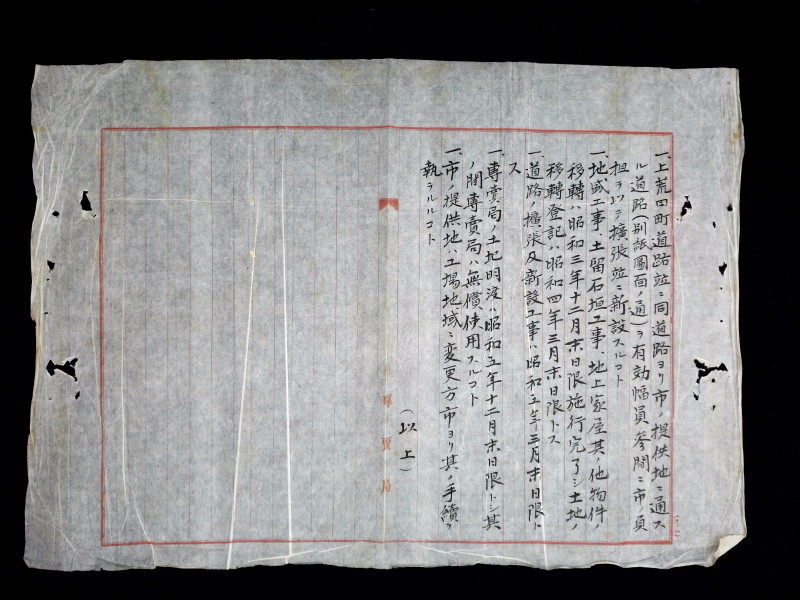 一、上荒田町道路竝ニ同道路ヨリ市ノ提供地ニ通ス
ル道路(別紙圖面ノ通)ヲ有効幅員參間ニ市ノ負
担ヲ以テ擴張竝ニ新設スルコト
一、地盛工事、土留石垣工事、地上家屋其ノ他物件ノ
移轉ハ昭和三年十二月末日限施行完了シ土地ノ
移轉登記ハ昭和四年三月末日限トス
一、道路ノ擴張及新設工事ハ昭和五年三月末日限ト
ス
一、專賣局ノ土地明渡ハ昭和五年十二月末日限トシ其
ノ間專賣局ハ無償使用スルコト
一、市ノ提供地ハ工場地域ニ変更方市ヨリ其ノ手續ヲ
執ラルルコト
(以上)
專賣局